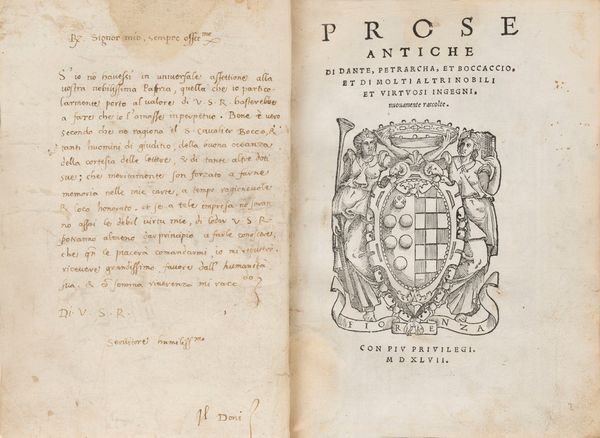 R. Signor mio, sempre osser.me
S'io no havessi in universale affettione alla
vostra nobilissima Patria, quella che io partico-
larmente porto al valore di V. S. R. basterebbe
a fare che io l'amasse in perpetuo. Bene è vero
secondo che no ragiona il S. Cavalier Boccio, &
tanti huomini di giuditio, della buona creanza
della cortesia delle lettere, & di tante altre doti
sue; che meritamente son forzato a farne
memoria nelle mie carte, a tempo ragionevole
& loco honorato. et se a tale impresa no saran
no assai le debil virtu mie, di lodar V. S. R.
potranno almeno dar principio a farle conoscere,
che qn le piacera comandarmi, io mi
ricevere grandissimo favore dall' humanità
sua. & co somma riverenza mi racc.do
Di. V. S. R.
Servitore humiliss.mo
Il Doni
PROSE
ANTICHE
DI DANTE, PETRARCHA, ET BOCCACCIO,
ET DI MOLTI ALTRI NOBILI
ET VIRTVOSI INGEGNI,
nuovamente raccolte.
FIORENZA
CON PIV PRIVILEGI.
M D XLVII.